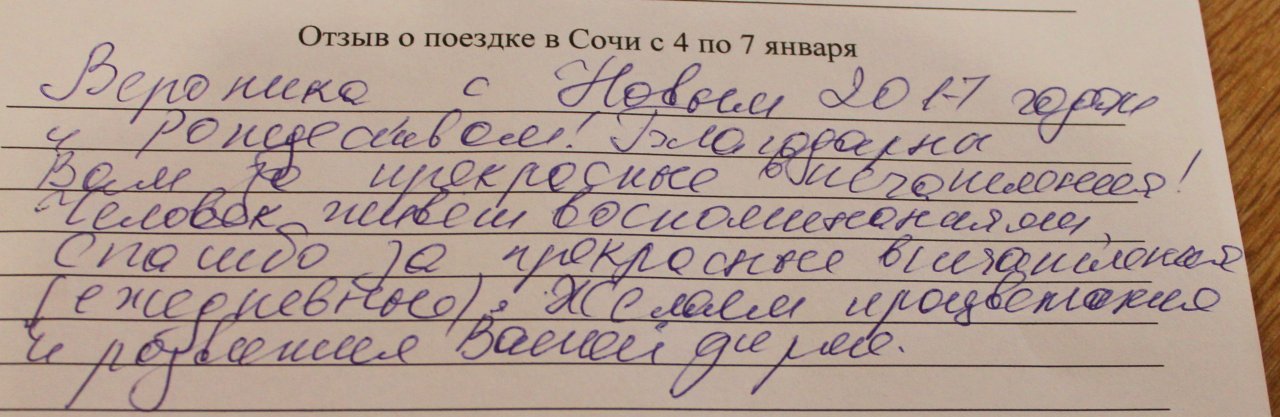 Отзыв о поездке в Сочи с 4 по 7 января
Вероника с Новым 2017 годом
и Рождеством! Благодарны
Вам за прекрасные впечатления!
Человек живет воспоминаниями,
Спасибо за прекрасные впечатления
(ежедневные). Желаем процветания
и развития Вашей фирме.